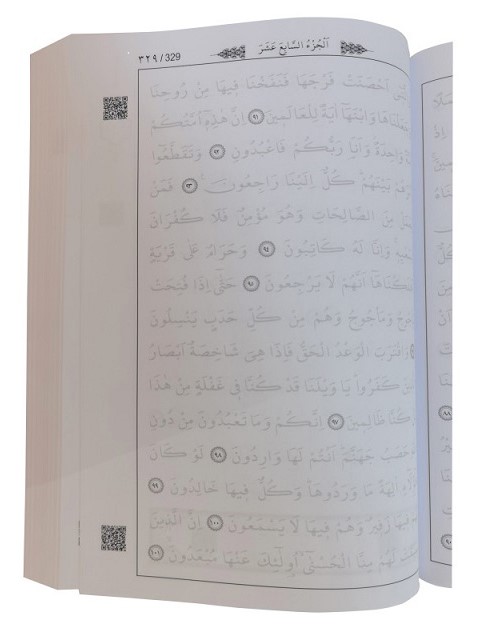 ٣٢٩ / 329 اَلْجُزْءُ السَّابِعَ عَشَرَ
اَحْصَنَتْ فَرْجَهَا فَنَفَخْنَا فِيهَا مِنْ رُوحِنَا
وَابْنَهَٓا اٰيَةً لِلْعَالَمِينَ ٩١ اِنَّ هٰذِهٖٓ اُمَّتُكُمْ
وَاحِدَةً وَاَنَا۬ رَبُّكُمْ فَاعْبُدُونِ ٩٢ وَتَقَطَّعُٓوا
بَيْنَهُمْ كُلٌّ اِلَيْنَا رَاجِعُونَ ٩٣ فَمَنْ
مِنَ الصَّالِحَاتِ وَهُوَ مُؤْمِنٌ فَلَا كُفْرَانَ
وَاِنَّا لَهُ كَاتِبُونَ ٩٤ وَحَرَامٌ عَلٰى قَرْيَةٍ
اَنَّهُمْ لَا يَرْجِعُونَ ٩٥ حَتّٰٓى اِذَا فُتِحَتْ
وَمَأْجُوجُ وَهُمْ مِنْ كُلِّ حَدَبٍ يَنْسِلُونَ
وَاقْتَرَبَ الْوَعْدُ الْحَقُّ فَاِذَا هِيَ شَاخِصَةٌ اَبْصَارُ
كَفَرُوا يَا وَيْلَنَا قَدْ كُنَّا فِي غَفْلَةٍ مِنْ هٰذَا
كُنَّا ظَالِمِينَ ٩٧ اِنَّكُمْ وَمَا تَعْبُدُونَ مِنْ دُونِ
حَصَبُ جَهَنَّمَ اَنْتُمْ لَهَا وَارِدُونَ ٩٨ لَوْ كَانَ
اٰلِهَةً مَا وَرَدُوهَا وَكُلٌّ فِيهَا خَالِدُونَ ٩٩
فِيهَا زَفِيرٌ وَهُمْ فِيهَا لَا يَسْمَعُونَ ١٠٠ اِنَّ الَّذِينَ
لَهُمْ مِنَّا الْحُسْنٰٓى اُو۬لٰٓئِكَ عَنْهَا مُبْعَدُونَ ١٠١